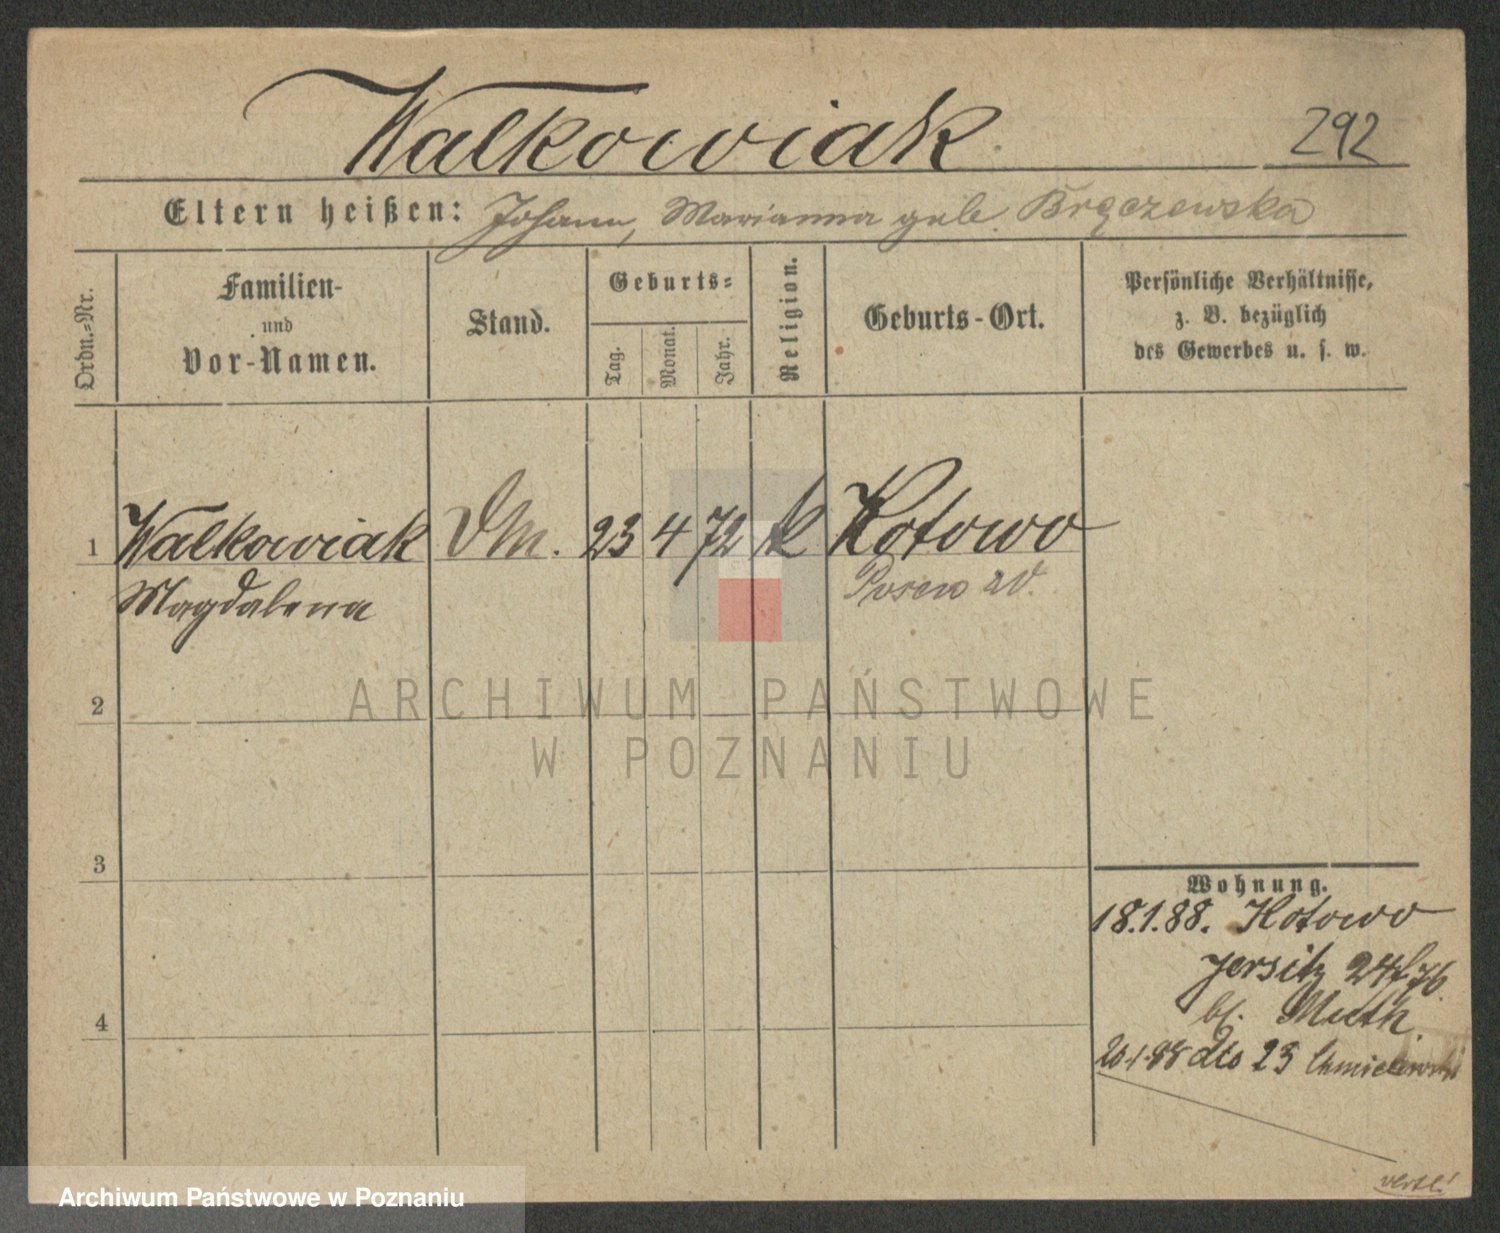 Walkowiak 292
Eltern heißen: Johann, Marianna geb. Bręczewska
Ordn.=Nr.
Familien-
und
Vor-Namen.
Stand.
Geburts=
Tag.
Monat.
Jahr.
Religion.
Geburts-Ort.
Persönliche Verhältnisse,
z. B. bezüglich
des Gewerbes u. s. w.
1 Walkowiak Dm. 23 4 72 k Kotowo
Magdalena Posen W.
2
3
4
Wohnung.
18.1.88. Kotowo
Jersitz 24 f 76
bj. Muth.
20.1.88 dto 23 Chmielewski
ARCHIWUM PAŃSTWOWE
W POZNANIU
Archiwum Państwowe w Poznaniu